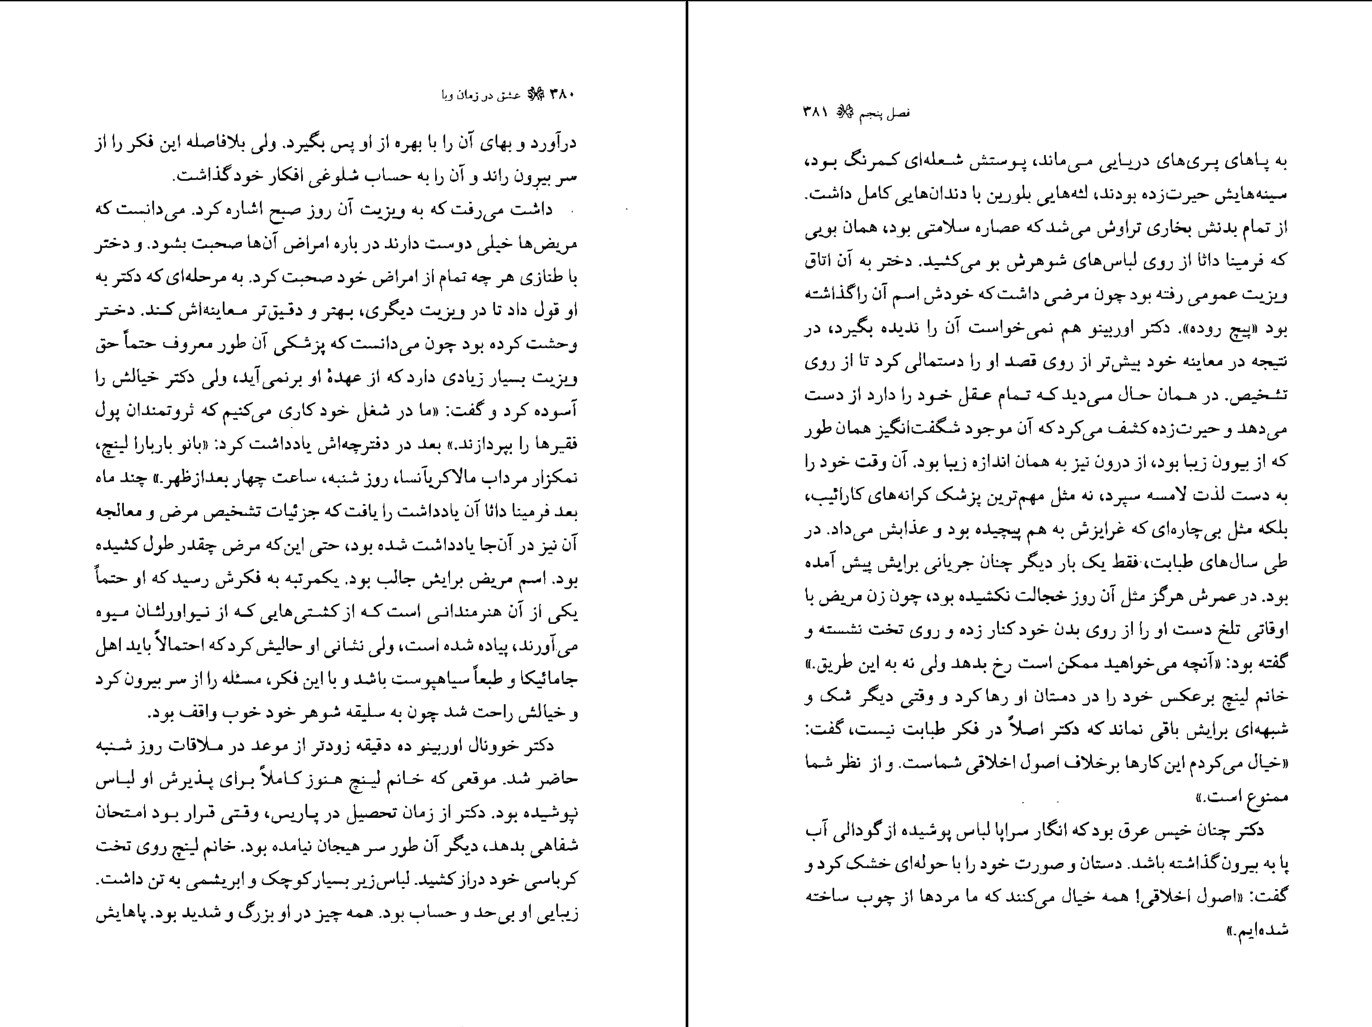 ۳۸۰ عشق در زمان وبا
درآورد و بهای آن را با بهره از او پس بگیرد. ولی بلافاصله این فکر را از
سر بیرون راند و آن را به حساب شلوغی افکار خود گذاشت.
داشت می‌رفت که به ویزیت آن روز صبح اشاره کرد. می‌دانست که
مریض‌ها خیلی دوست دارند در باره امراض آن‌ها صحبت بشود. و دختر
با طنازی هر چه تمام از امراض خود صحبت کرد. به مرحله‌ای که دکتر به
او قول داد تا در ویزیت دیگری، بهتر و دقیق‌تر معاینه‌اش کند. دختر
وحشت کرده بود چون می‌دانست که پزشکی آن طور معروف حتماً حق
ویزیت بسیار زیادی دارد که از عهدهٔ او برنمی‌آید، ولی دکتر خیالش را
آسوده کرد و گفت: «ما در شغل خود کاری می‌کنیم که ثروتمندان پول
فقیرها را بپردازند.» بعد در دفترچه‌اش یادداشت کرد: «بانو باربارا لینچ،
نمکزار مرداب مالاکریآنسا، روز شنبه، ساعت چهار بعدازظهر.» چند ماه
بعد فرمینا داثا آن یادداشت را یافت که جزئیات تشخیص مرض و معالجه
آن نیز در آن‌جا یادداشت شده بود، حتی این‌که مرض چقدر طول کشیده
بود. اسم مریض برایش جالب بود. یکمرتبه به فکرش رسید که او حتماً
یکی از آن هنرمندانی است که از کشتی‌هایی که از نیواورلئان میوه
می‌آورند، پیاده شده است، ولی نشانی او حالیش کرد که احتمالاً باید اهل
جامائیکا و طبعاً سیاهپوست باشد و با این فکر، مسئله را از سر بیرون کرد
و خیالش راحت شد چون به سلیقه شوهر خود خوب واقف بود.
دکتر خوونال اوربینو ده دقیقه زودتر از موعد در ملاقات روز شنبه
حاضر شد. موقعی که خانم لینچ هنوز کاملاً برای پذیرش او لباس
نپوشیده بود. دکتر از زمان تحصیل در پاریس، وقتی قرار بود امتحان
شفاهی بدهد، دیگر آن طور سر هیجان نیامده بود. خانم لینچ روی تخت
کرباسی خود دراز کشید. لباس‌زیر بسیار کوچک و ابریشمی به تن داشت.
زیبایی او بی‌حد و حساب بود. همه چیز در او بزرگ و شدید بود. پاهایش
فصل پنجم ۳۸۱
به پاهای پری‌های دریایی می‌ماند، پوستش شعله‌ای کمرنگ بود،
سینه‌هایش حیرت‌زده بودند، لثه‌هایی بلورین با دندان‌هایی کامل داشت.
از تمام بدنش بخاری تراوش می‌شد که عصاره سلامتی بود، همان بویی
که فرمینا داثا از روی لباس‌های شوهرش بو می‌کشید. دختر به آن اتاق
ویزیت عمومی رفته بود چون مرضی داشت که خودش اسم آن را گذاشته
بود «پیچ روده». دکتر اوربینو هم نمی‌خواست آن را ندیده بگیرد، در
نتیجه در معاینه خود بیش‌تر از روی قصد او را دستمالی کرد تا از روی
تشخیص. در همان حال می‌دید که تمام عقل خود را دارد از دست
می‌دهد و حیرت‌زده کشف می‌کرد که آن موجود شگفت‌انگیز همان طور
که از بیرون زیبا بود، از درون نیز به همان اندازه زیبا بود. آن وقت خود را
به دست لذت لامسه سپرد، نه مثل مهم‌ترین پزشک کرانه‌های کارائیب،
بلکه مثل بی‌چاره‌ای که غرایزش به هم پیچیده بود و عذابش می‌داد. در
طی سال‌های طبابت، فقط یک بار دیگر چنان جریانی برایش پیش آمده
بود. در عمرش هرگز مثل آن روز خجالت نکشیده بود، چون زن مریض با
اوقاتی تلخ دست او را از روی بدن خود کنار زده و روی تخت نشسته و
گفته بود: «آنچه می‌خواهید ممکن است رخ بدهد ولی نه به این طریق.»
خانم لینچ برعکس خود را در دستان او رها کرد و وقتی دیگر شک و
شبهه‌ای برایش باقی نماند که دکتر اصلاً در فکر طبابت نیست، گفت:
«خیال می‌کردم این کارها برخلاف اصول اخلاقی شماست. و از نظر شما
ممنوع است.»
دکتر چنان خیس عرق بود که انگار سراپا لباس پوشیده از گودالی آب
پا به بیرون گذاشته باشد. دستان و صورت خود را با حوله‌ای خشک کرد و
گفت: «اصول اخلاقی! همه خیال می‌کنند که ما مردها از چوب ساخته
شده‌ایم.»